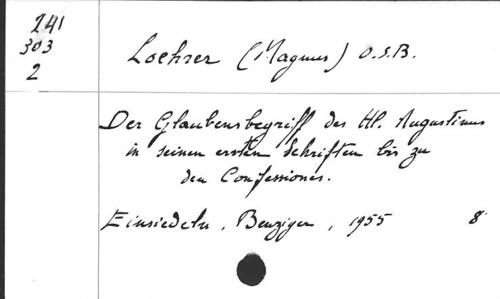 241
303
2
Loehrer (Magnus) O.S.B.
Der Glaubensbegriff des Hl. Augustinus
in seinen ersten Schriften bis zu
den Confessiones.
Einsiedeln, Benziger, 1955 8°